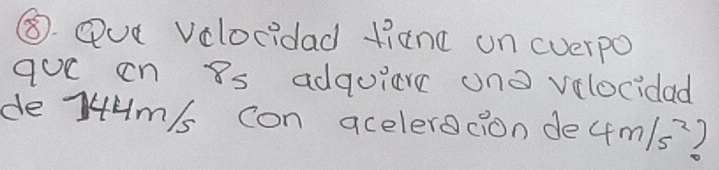 ⑧. Que velocidad tiene un cuerpo
que en 8s adquiere una velocidad
de 144m/s con aceleración de 4m/s²?